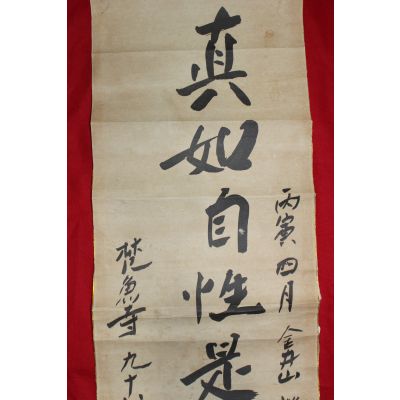 丙寅四月 金井山
真如自性是
梵魚寺 九十